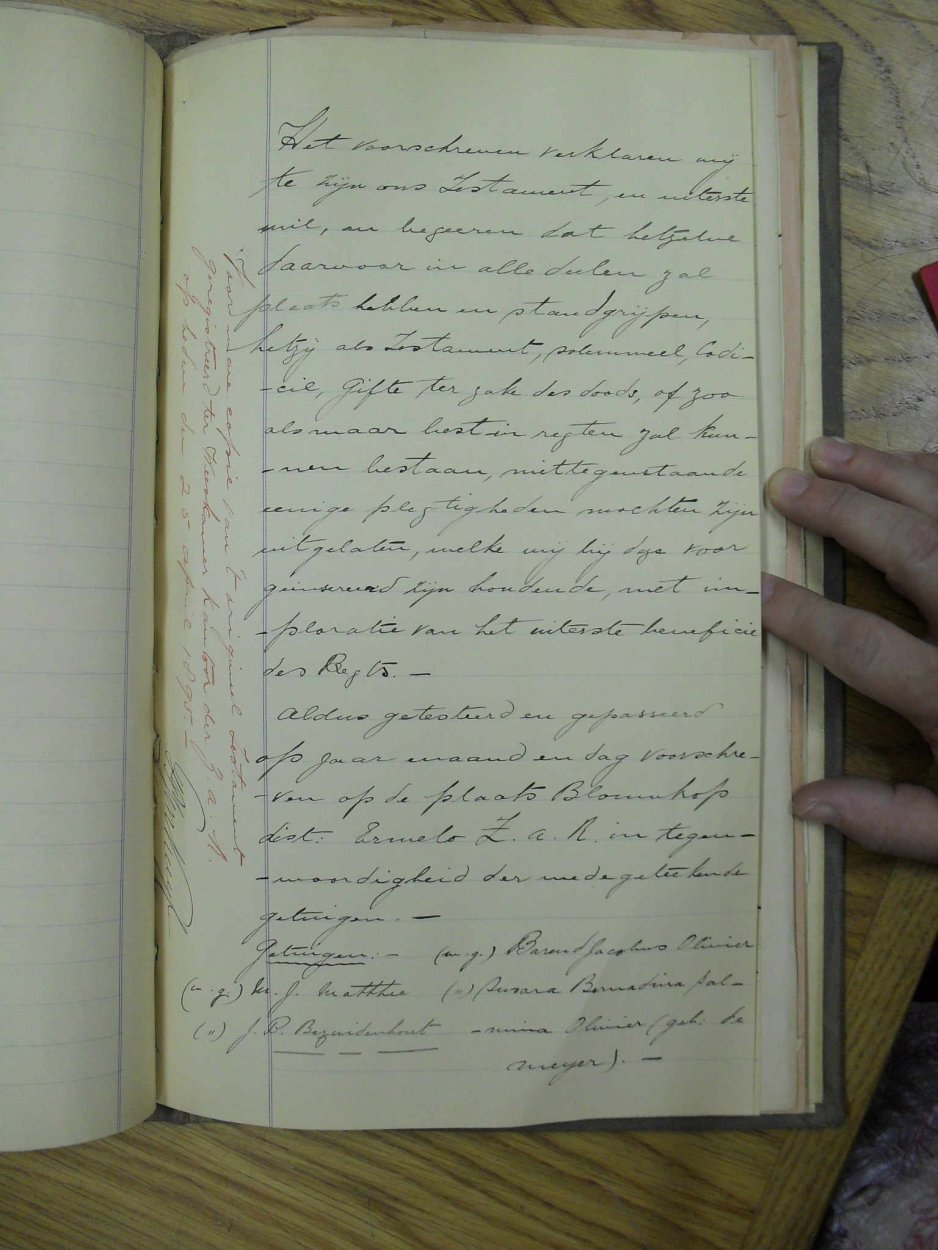 Het voorschreven verklaren wij
te zijn ons Testament, en uiterste
wil, en begeeren dat hetzelve
daarvoor in alle deelen zal
plaats hebben en standgrijpen,
hetzij als Testament, solemneel, Codi-
-cil, Gifte ter zake des doods, of zoo
als maar best in regten zal kun-
-nen bestaan, niettegenstaande
eenige plegtigheden mochten zijn
uitgelaten, welke wij bij deze voor
geinsereerd zijn houdende, met im-
-ploratie van het uiterste beneficie
des Regts. —
Aldus getesteerd en gepasseerd
op jaar maand en dag voorschre-
-ven op de plaats Blomunkop
dist: Ermelo Z. A. R. in tegen-
-woordigheid der medegeteekende
getuigen. —
Getuigen:- (w.g.) Barend Jacobus Olivier
(w.g.) M. J. Matthee (") Susara Bernadina Jal-
(") J. P. Bezuidenhout -mina Olivier (geb: de
meyer). —
Voor ware copie van 't origineel testament
geregistreerd ter Weeskamer kantoor der Z. A. R.
op heden den 25 april 1895.-